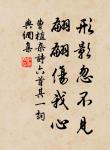 形影忽不見
翩翩傷我心
曹植雜詩六首其一詞
典網集